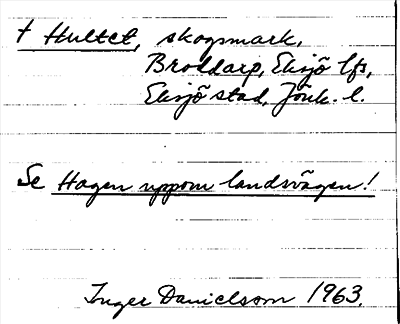 † Hultet, skogsmark,
Broddarp, Eksjö lfs,
Eksjö stad, Jönk. l.
Se Hagen uppom landsvägen!
Inger Danielsson 1963.